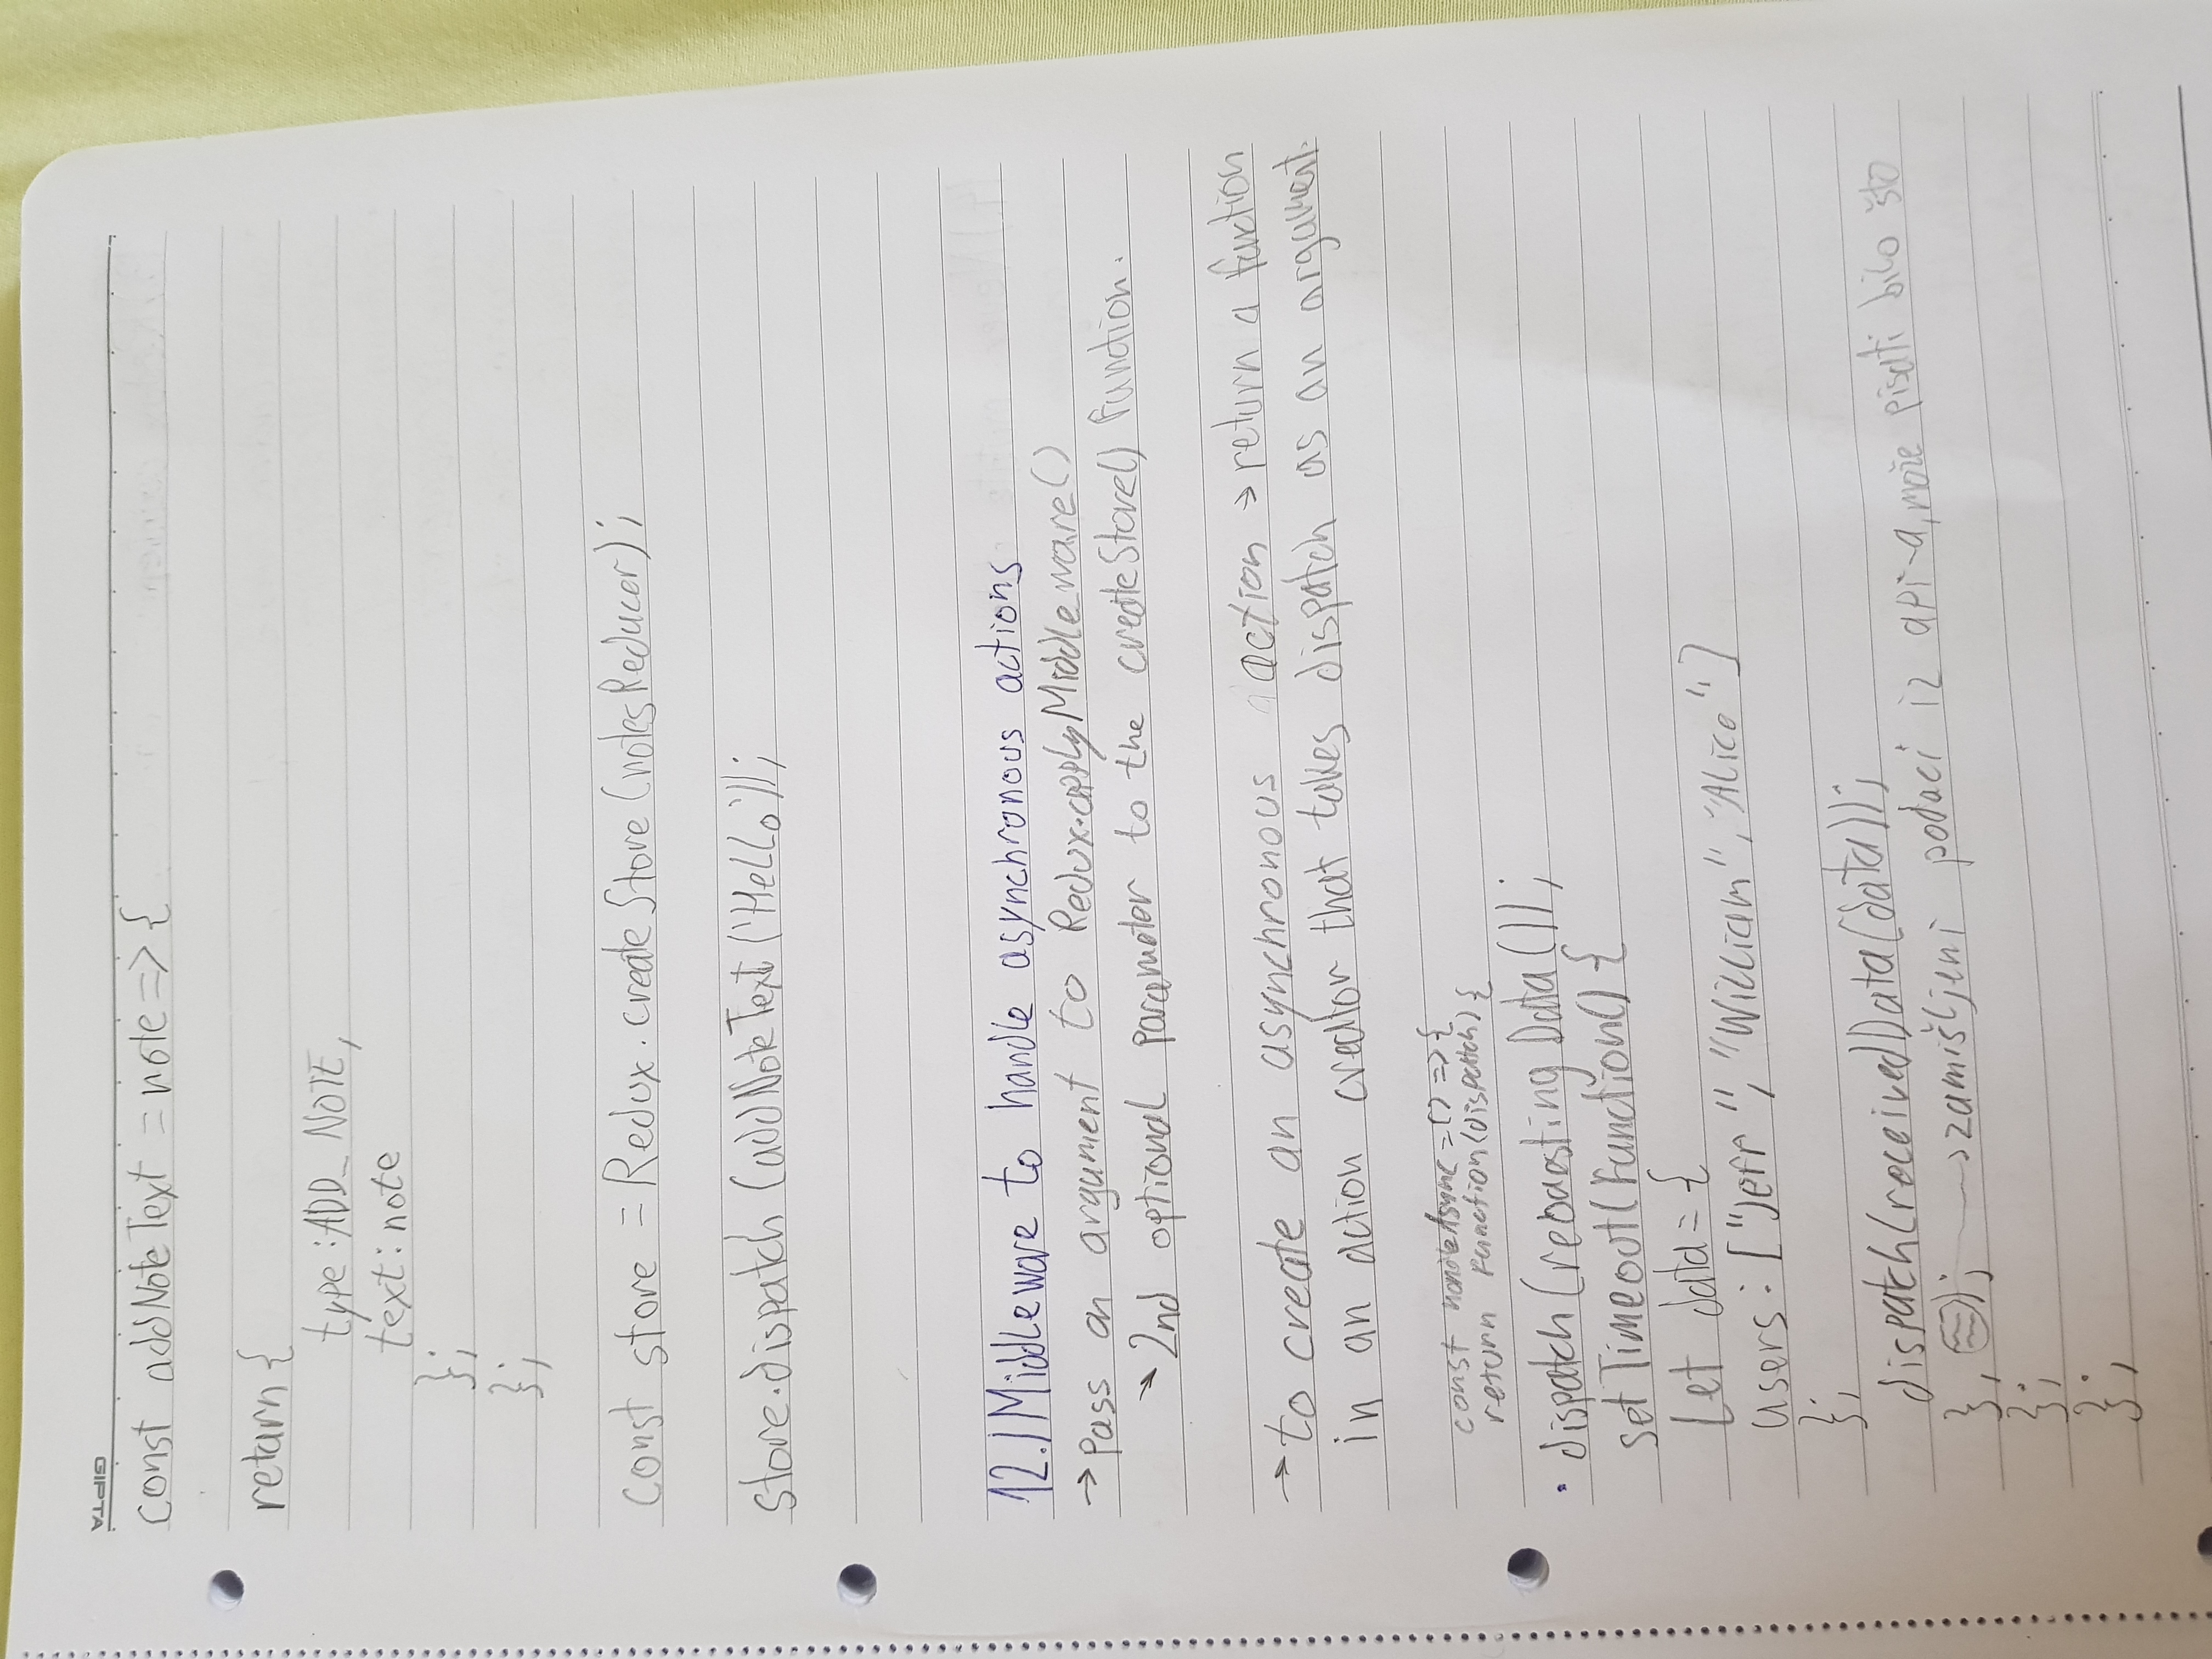 GIPTA
const addNoteText = note => {
return {
type: ADD_NOTE,
text: note
};
};
const store = Redux.createStore(notesReducer);
store.dispatch(addNoteText('Hello'));
12.) Middleware to handle asynchronous actions
→ pass an argument to Redux.applyMiddleware()
↘ 2nd optional parameter to the createStore() function.
→ to create an asynchronous action → return a function
in an action creator that takes dispatch as an argument.
const handleAsync = () => {
return function(dispatch) {
• dispatch(requestingData());
setTimeout(function() {
let data = {
users: ["Jeff", "William", "Alice"]
};
dispatch(receivedData(data));
}, ); → zamišljeni podaci iz api-a, može pisati bilo što
};
};